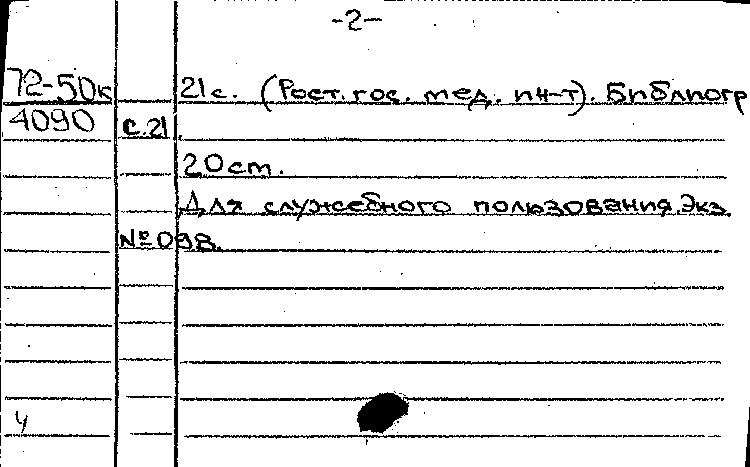 -2-
72-50к 21с. (Рост. гос. мед. ин-т). Библиогр
4090 с.21.
20см.
Для служебного пользования. Экз.
№098.
ч